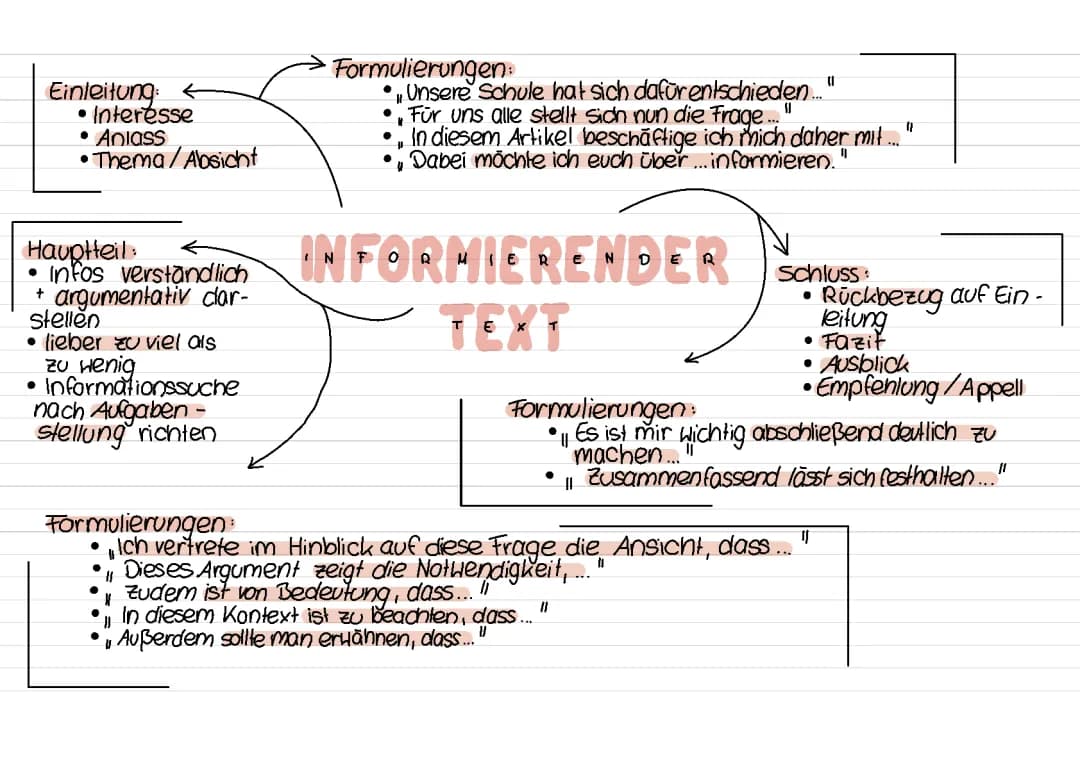 Einleitung:
• Interesse
• Anlass
• Thema / Absicht
Formulierungen:
• „Unsere Schule hat sich dafür entschieden..."
• „Für uns alle stellt sich nun die Frage..."
• „In diesem Artikel beschäftige ich mich daher mit..."
• „Dabei möchte ich euch über ... informieren."
INFORMIERENDER
TEXT
Hauptteil:
• Infos verständlich
+ argumentativ dar-
stellen
• lieber zu viel als
zu wenig
• Informationssuche
nach Aufgaben-
stellung richten
Schluss:
• Rückbezug auf Ein-
leitung
• Fazit
• Ausblick
• Empfehlung / Appell
Formulierungen:
• „Es ist mir wichtig abschließend deutlich zu
machen..."
• „Zusammenfassend lässt sich festhalten..."
Formulierungen:
• „Ich vertrete im Hinblick auf diese Frage die Ansicht, dass ..."
• „Dieses Argument zeigt die Notwendigkeit, ..."
• „Zudem ist von Bedeutung, dass..."
• „In diesem Kontext ist zu beachten, dass ..."
• „Außerdem sollte man erwähnen, dass..."